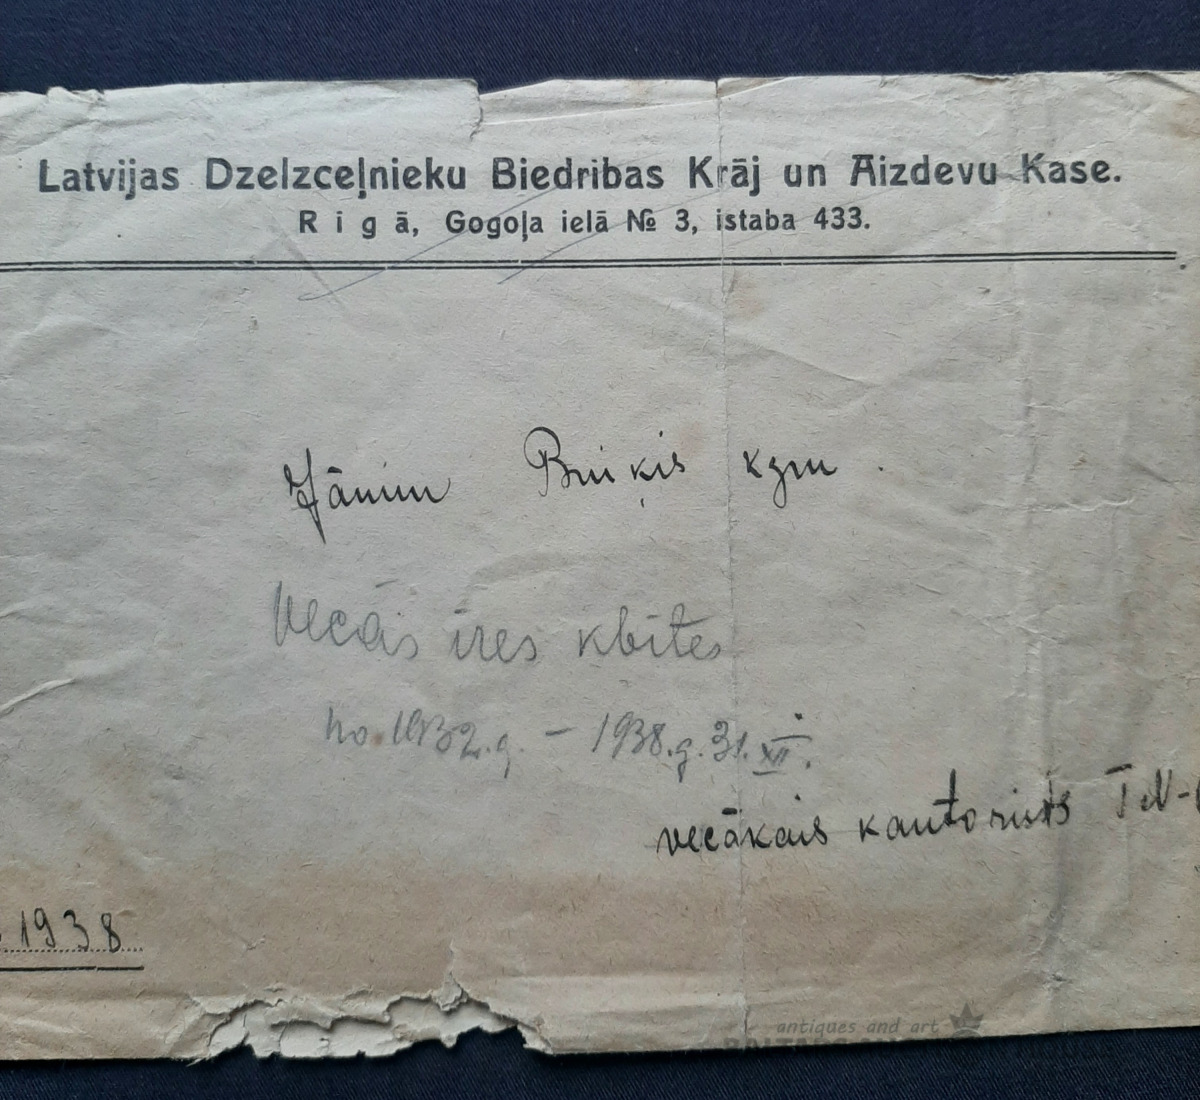 Latvijas Dzelzceļnieku Biedribas Krāj un Aizdevu Kase.
Rīgā, Gogoļa ielā № 3, istaba 433.
Jānim Bruķis kgm
Vecās īres kvītes
no 1932.g. – 1938.g. 31. XII.
vecākais kantorists
1938
antiques and art